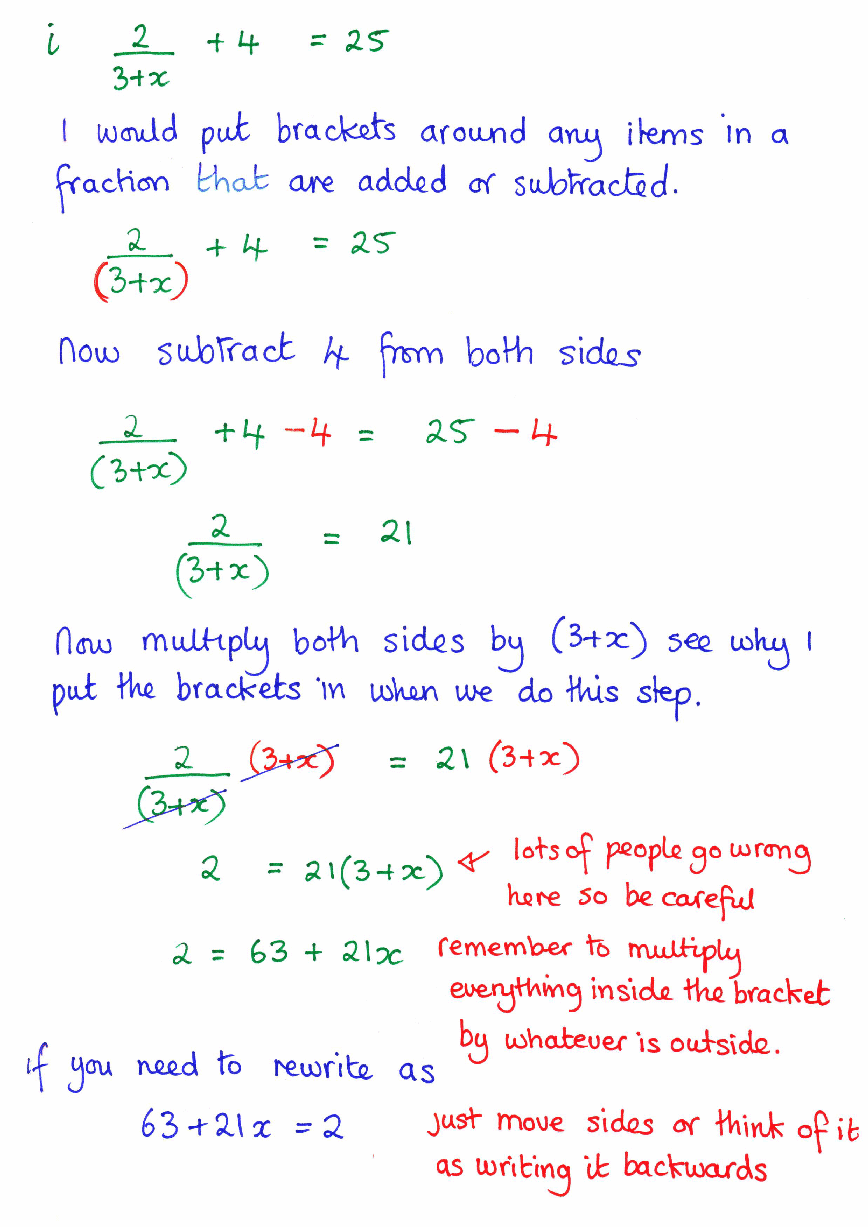 i 2/3+x + 4 = 25
I would put brackets around any items in a
fraction that are added or subtracted.
2/(3+x) + 4 = 25
Now subtract 4 from both sides
2/(3+x) +4 -4 = 25 - 4
2/(3+x) = 21
Now multiply both sides by (3+x) see why I
put the brackets in when we do this step.
2/(3+x) (3+x) = 21 (3+x)
2 = 21(3+x) lots of people go wrong
here so be careful
2 = 63 + 21x remember to multiply
everything inside the bracket
by whatever is outside.
if you need to rewrite as
63+21x = 2 just move sides or think of it
as writing it backwards